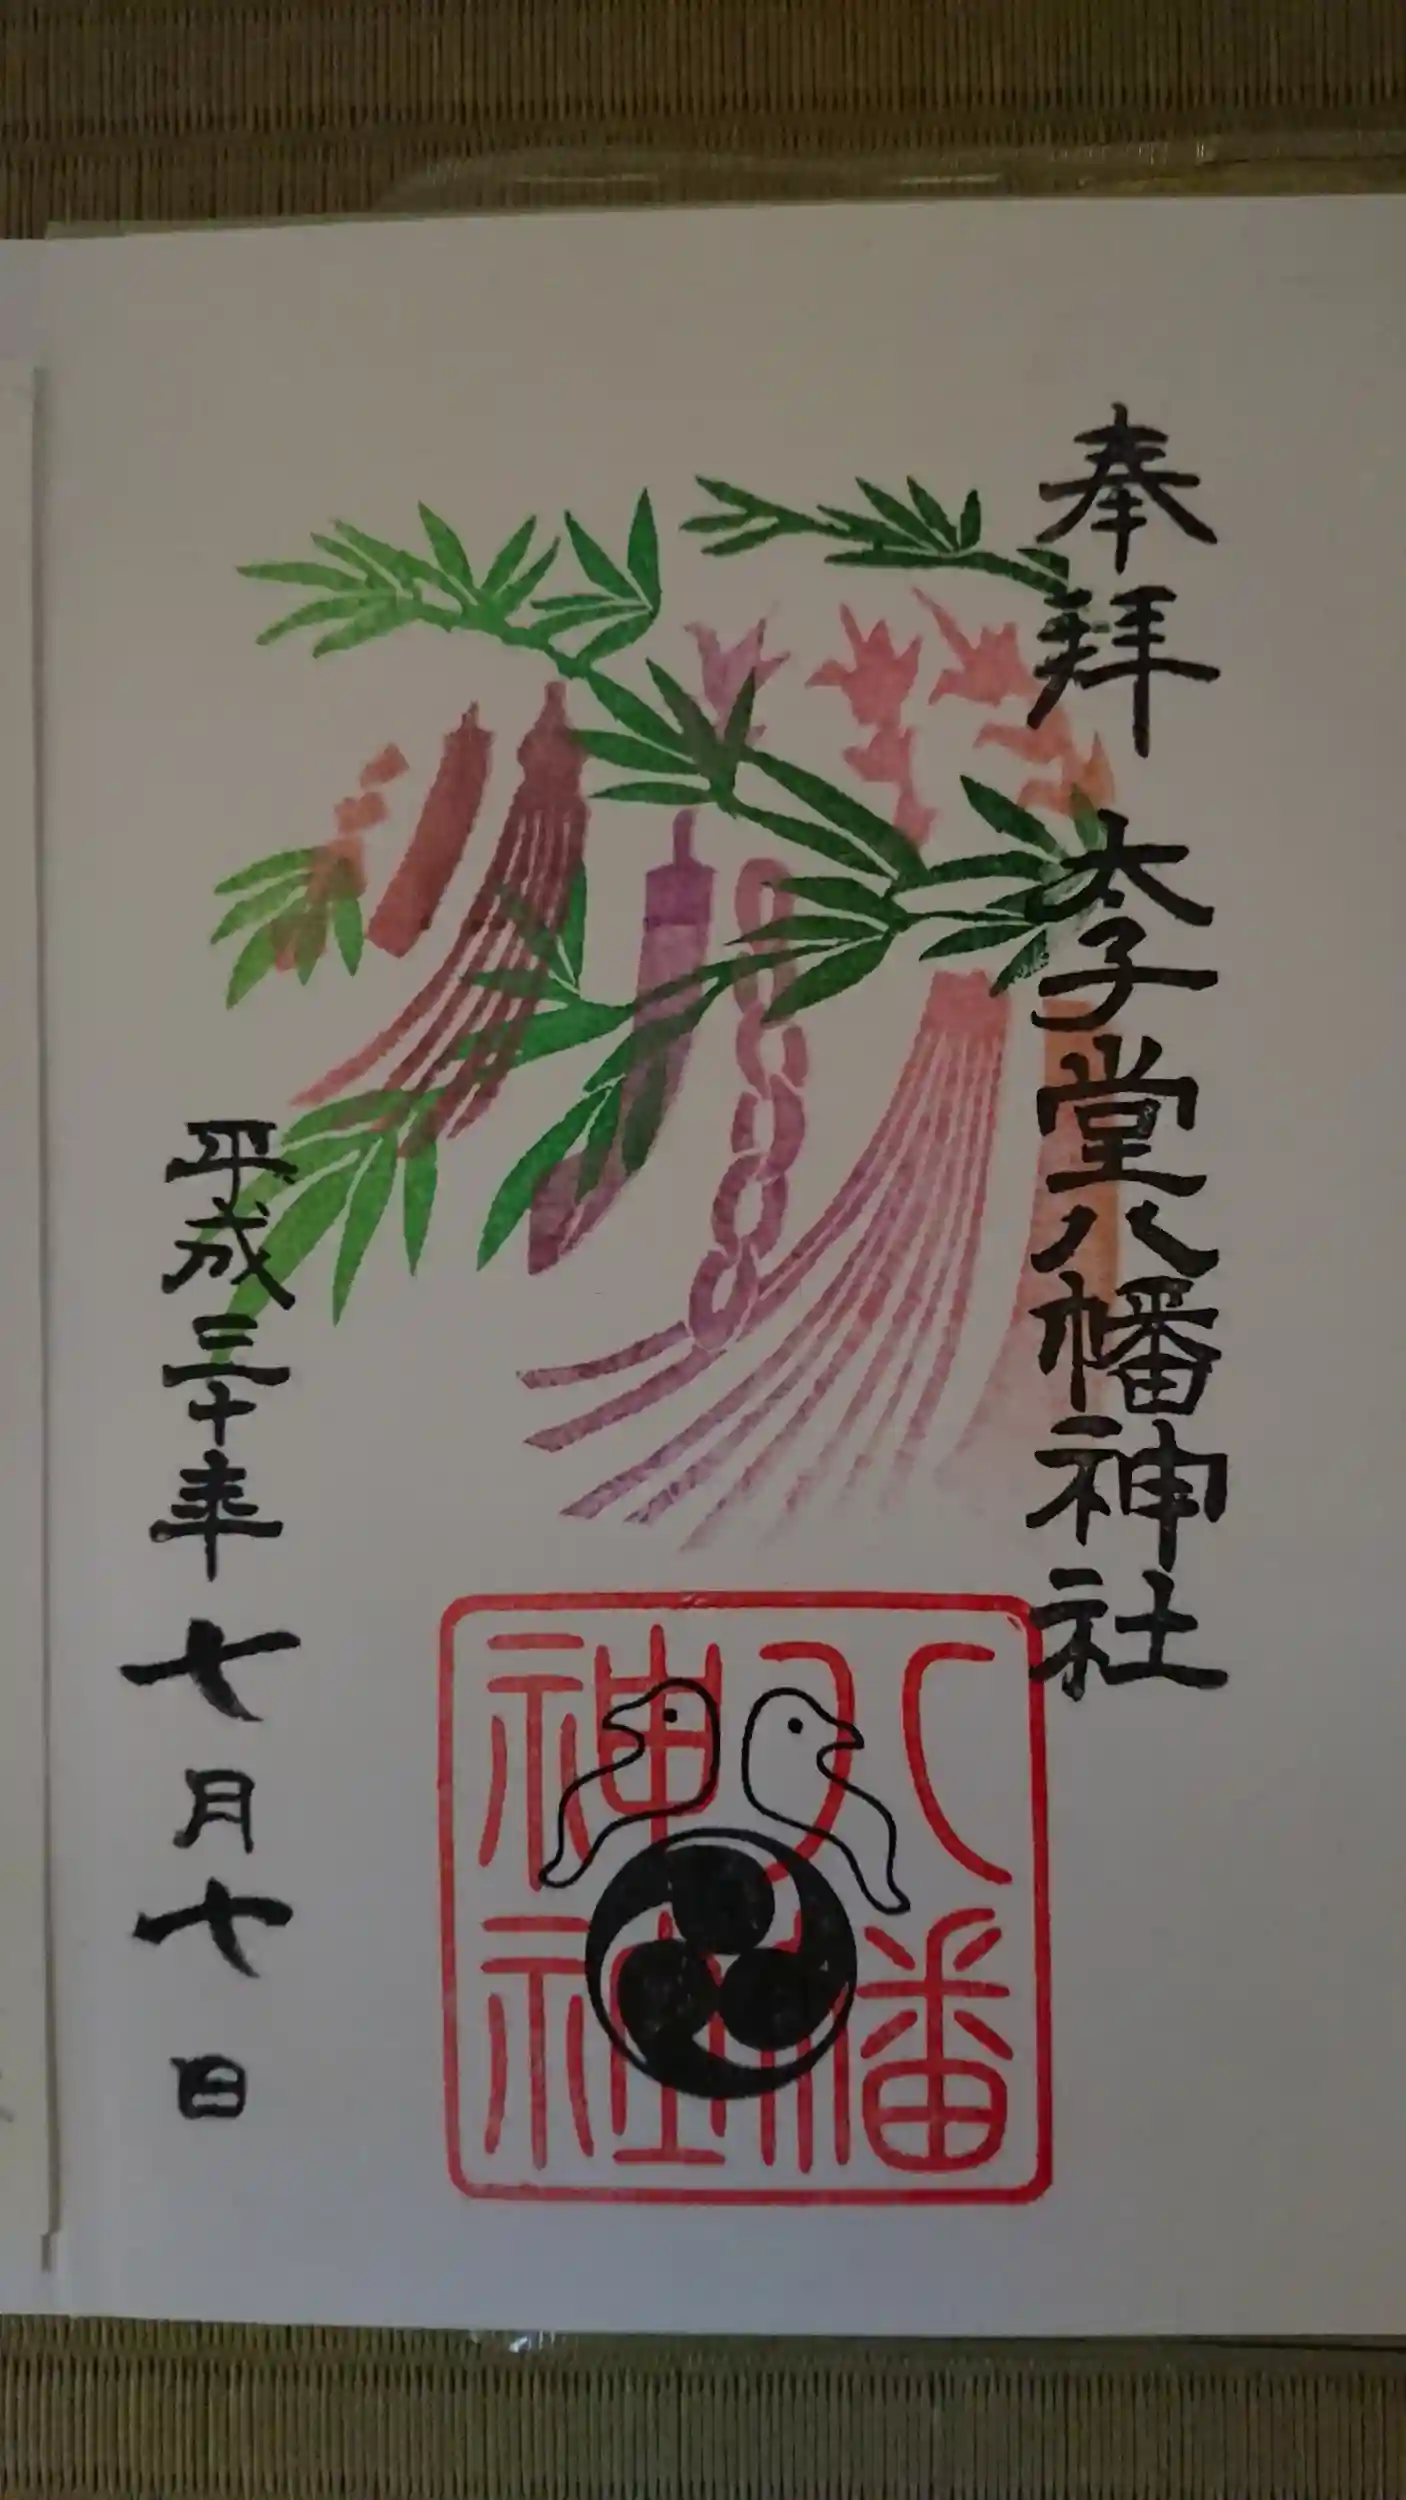 奉拝 太子堂八幡神社
平成三十年七月七日
八幡
神社